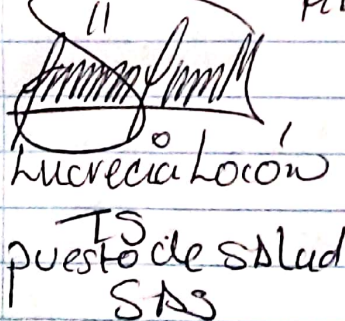 Lucrecia Locón
TS
puesto de SAlud
SAS